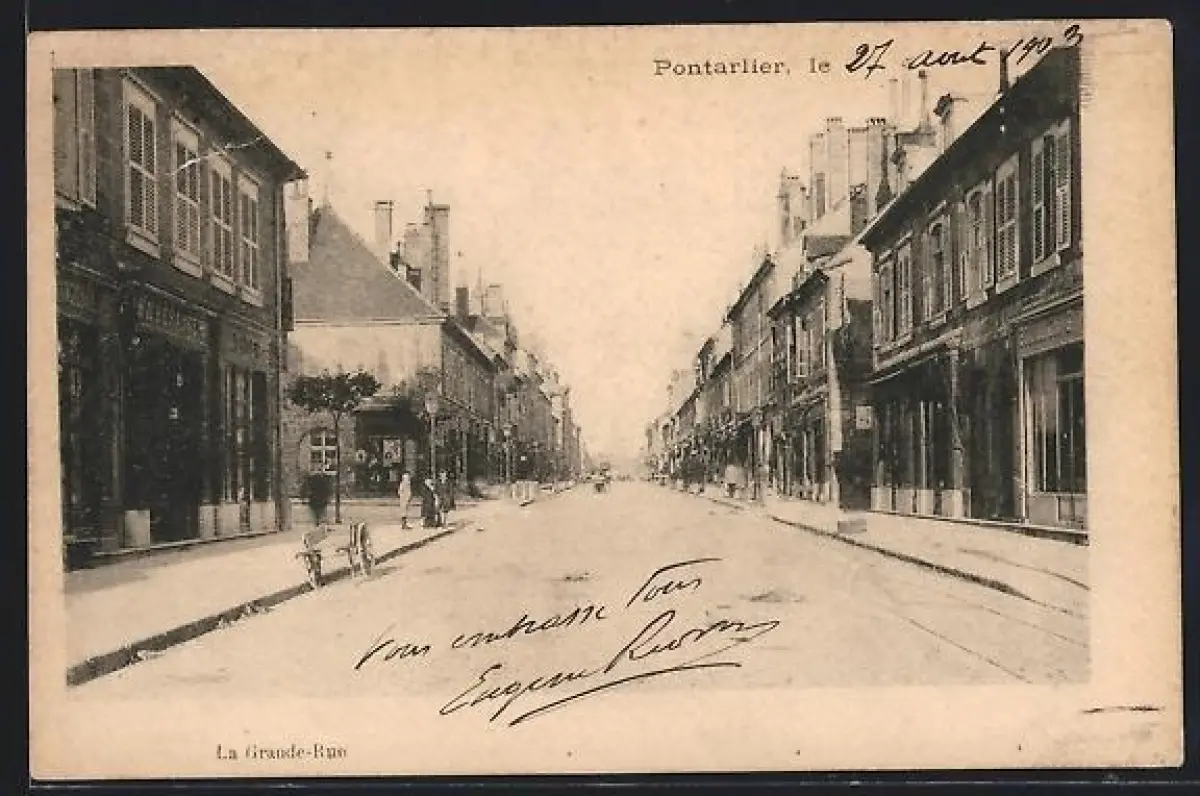 Pontarlier, le 27 aout 1903
Vous embrasse Tous
Eugene
La Grande-Rue